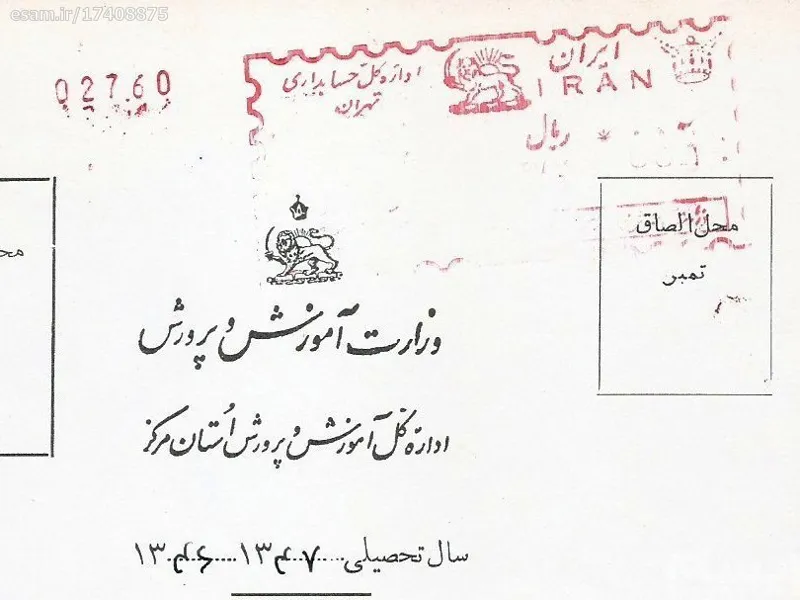 esam.ir/17408875
02760
اداره کل حسابداری
تهران
ایران
IRAN
ریال
محل الصاق
تمبر
وزارت آموزش و پرورش
اداره کل آموزش و پرورش استان مرکز
سال تحصیلی....۱۳۴۷....۱۳۴۶